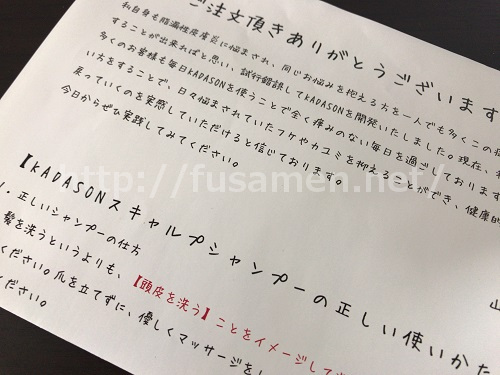 ご注文頂きありがとうございます
私自身も脂漏性皮膚炎に悩まされ、同じお悩みを抱える方を一人でも多くこの症
することが出来ればと思い、試行錯誤してKADASONを開発いたしました。現在、
多くのお客様も毎日KADASONを使うことで全く痒みのない毎日を過ごしております
い方をすることで、日々悩まされていたフケやカユミを抑えることができ、健康的
戻っていくのを実感していただけると信じております。
今日からぜひ実践してみてください。
山
http://fusamen.net/
【KADASONスキャルプシャンプーの正しい使いかた
1. 正しいシャンプーの仕方
髪を洗うというよりも、【頭皮を洗う】ことをイメージして
ください。爪を立てずに、優しくマッサージを
ください。